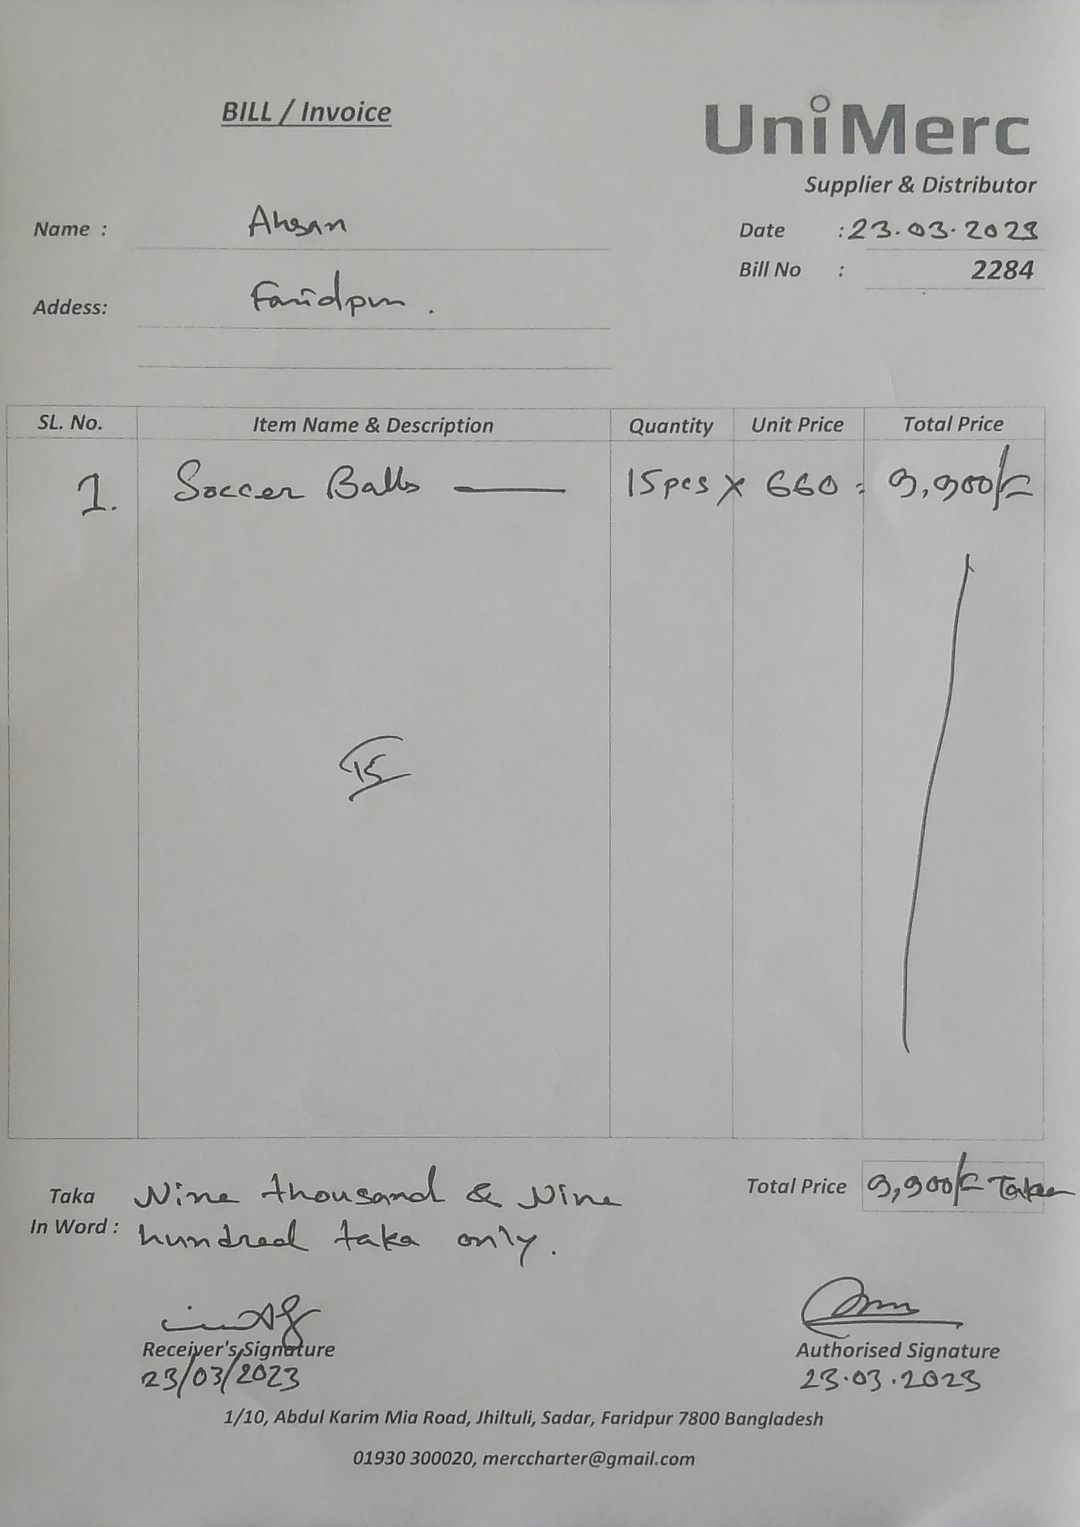 BILL / Invoice
UniMerc
Supplier & Distributor
Name : Ahsan
Date : 23.03.2023
Bill No : 2284
Addess: Faridpur.
SL. No. Item Name & Description Quantity Unit Price Total Price
1. Soccer Balls — 15pcs x 660 = 9,900/=
Total Price 9,900/= Taka
Taka In Word : Nine thousand & Nine
hundred taka only.
Receiver's Signature
Authorised Signature
23/03/2023
23.03.2023
1/10, Abdul Karim Mia Road, Jhiltuli, Sadar, Faridpur 7800 Bangladesh
01930 300020, merccharter@gmail.com